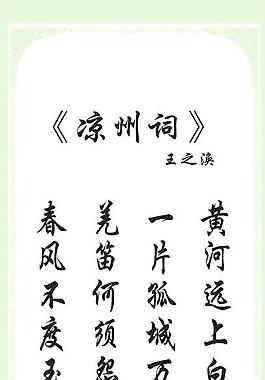 《凉州词》
王之涣
黄河远上白
一片孤城万
羌笛何须怨
春风不度玉